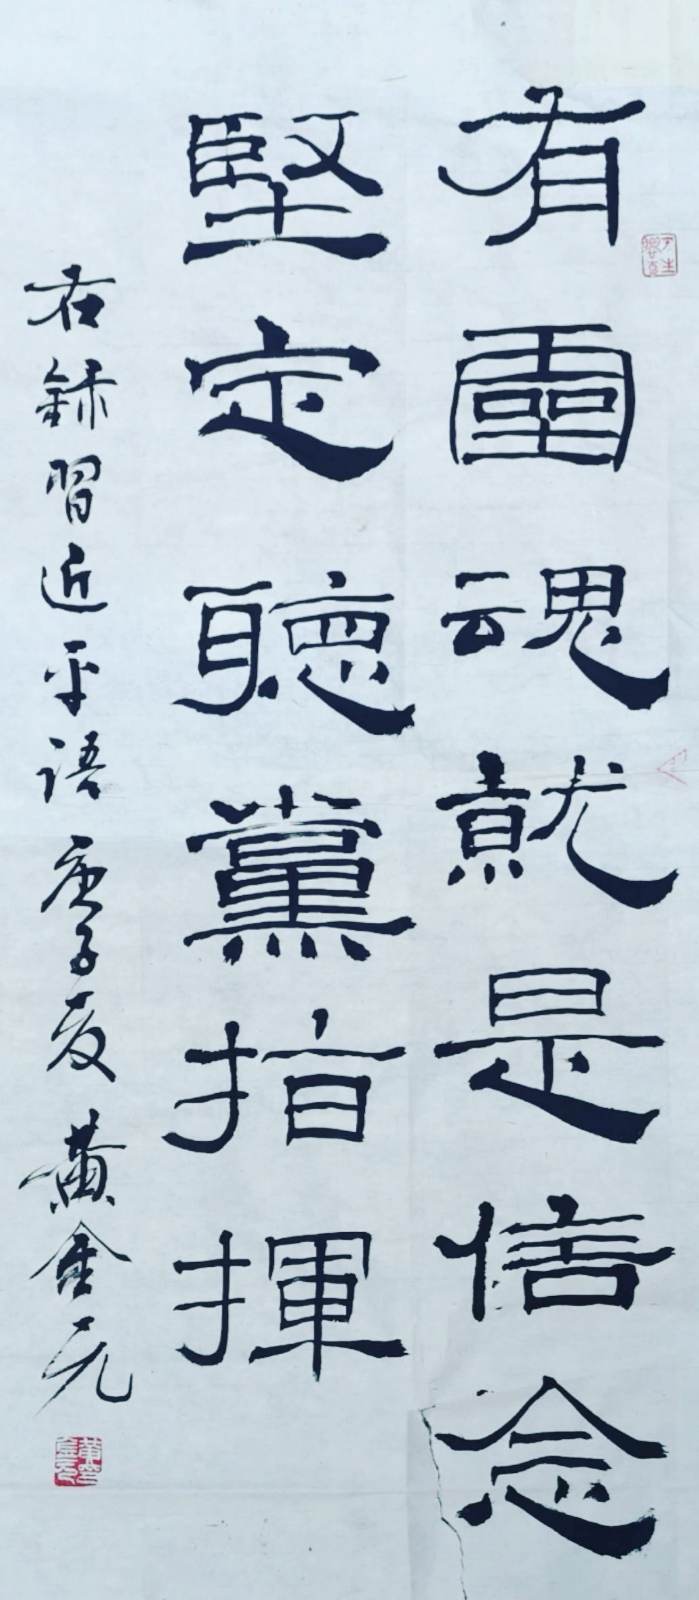 有靈魂就是信念
堅定聽黨指揮
右錄習近平語庚子夏黃金元